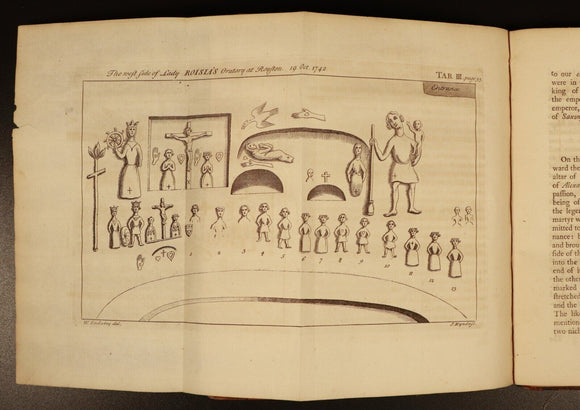 The west side of Lady ROISIA'S Oratory at Royston. 19. Oct. 1742
TAB III. page 33
Entrance
1 2 3 4 5 6 7 8 9 10 11 12 13
W. Stukeley del.
to our
were in
king of
the empe
emperor,
of Saxon
On th
ward the
altar of
of Alexa
passion,
being of
the legen
martyr w
mitted to
nance: b
and brou
side of th
into the
end of i
the other
marked
stretched
and the
The like
mention
two nich